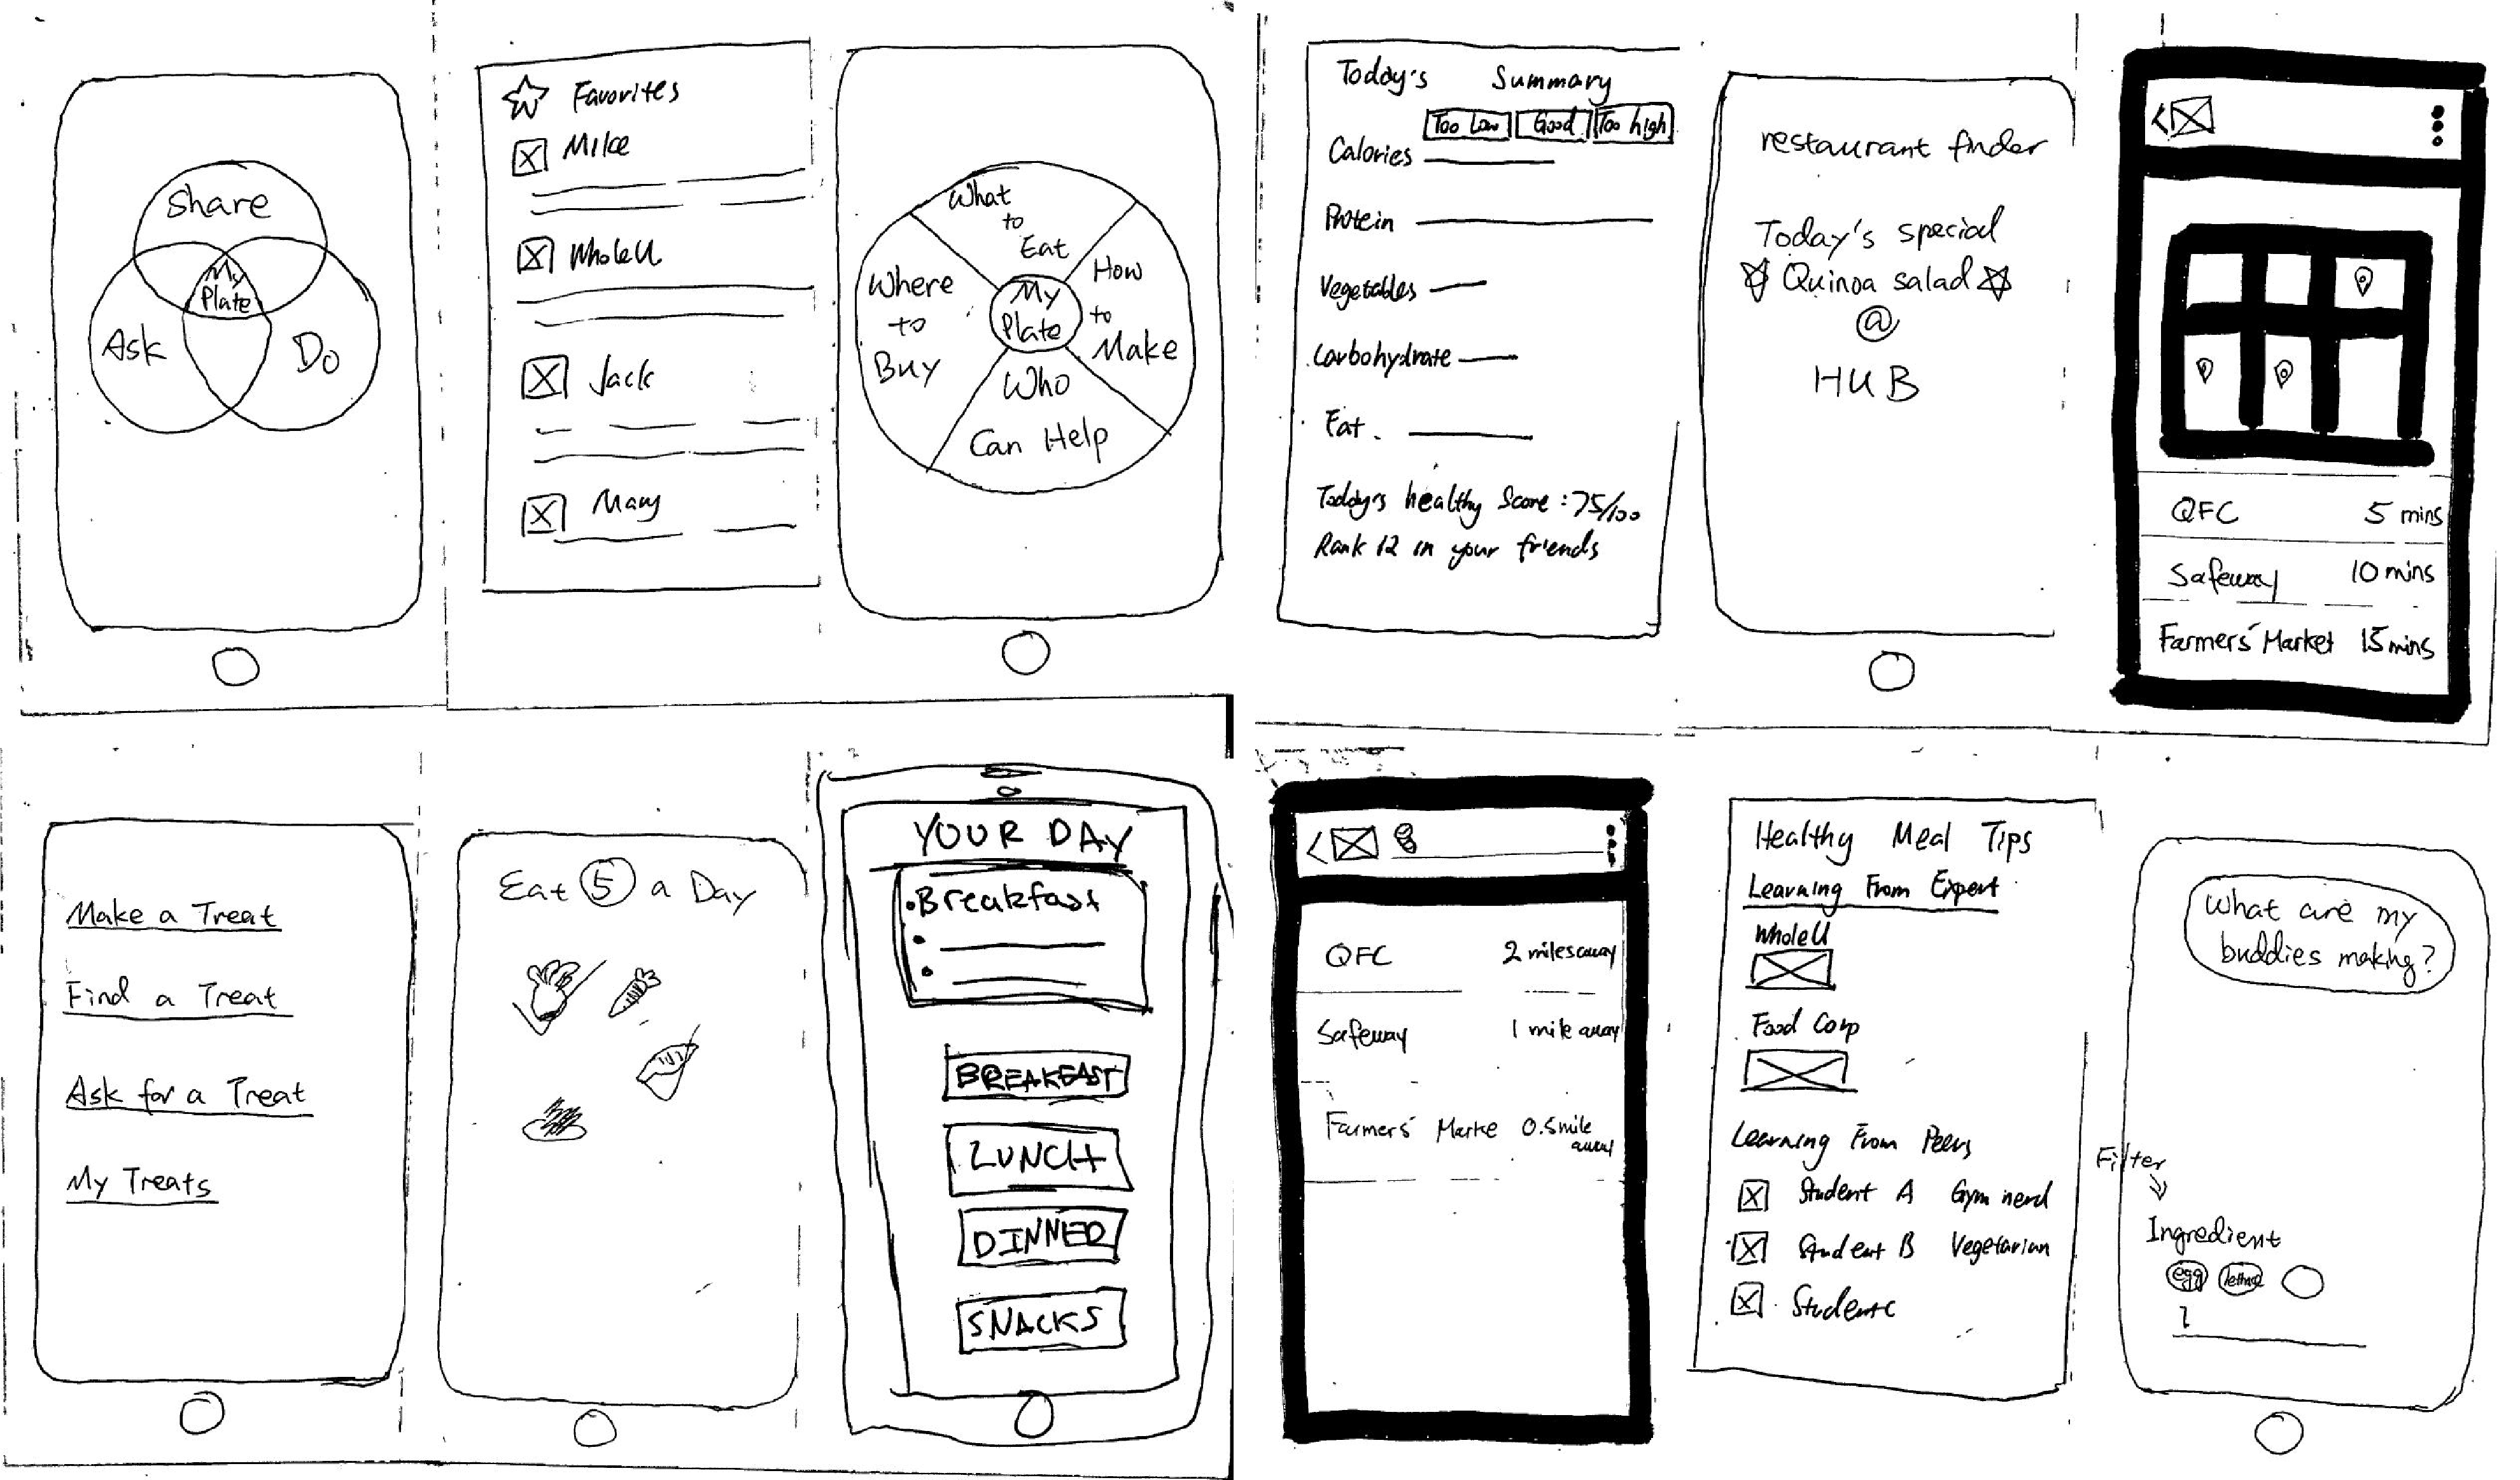 Share
My
Plate
Ask
Do
Favorites
Mike
WholeU
Jack
Mary
What
to
Eat
How
to
Make
Where
to
Buy
My
Plate
Who
Can Help
Today's Summary
Too Low Good Too high
Calories
Protein
Vegetables
Carbohydrate
Fat
Today's healthy Score : 75/100
Rank 12 in your friends
restaurant finder
Today's special
Quinoa salad
@
HUB
<
QFC 5 mins
Safeway 10 mins
Farmers' Market 15 mins
Make a Treat
Find a Treat
Ask for a Treat
My Treats
Eat 5 a Day
YOUR DAY
• Breakfast
BREAKFAST
LUNCH
DINNER
SNACKS
<
QFC 2 miles away
Safeway 1 mile away
Farmers' Marke 0.5 mile
away
Healthy Meal Tips
Learning From Expert
WholeU
Food Corp
Learning From Peers
Student A Gym nerd
Student B Vegetarian
Student C
What are my
buddies making?
Filter
Ingredient
egg